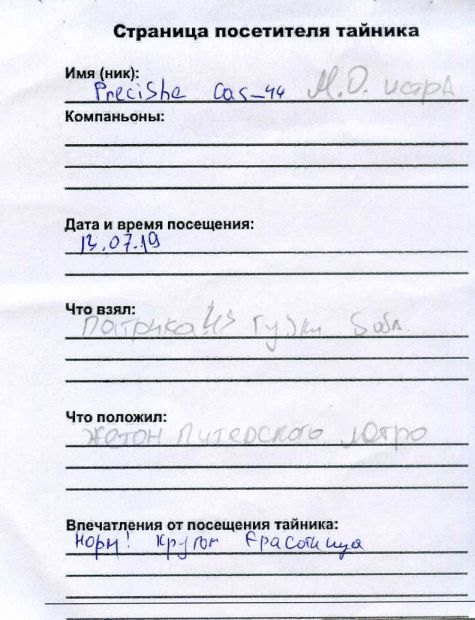 Страница посетителя тайника
Имя (ник):
Precishe cas_44 М.О. истра
Компаньоны:
Дата и время посещения:
13.07.19
Что взял:
Патрика из губки боба
Что положил:
Жетон Питерского метро
Впечатления от посещения тайника:
Норм! Кругом красотища